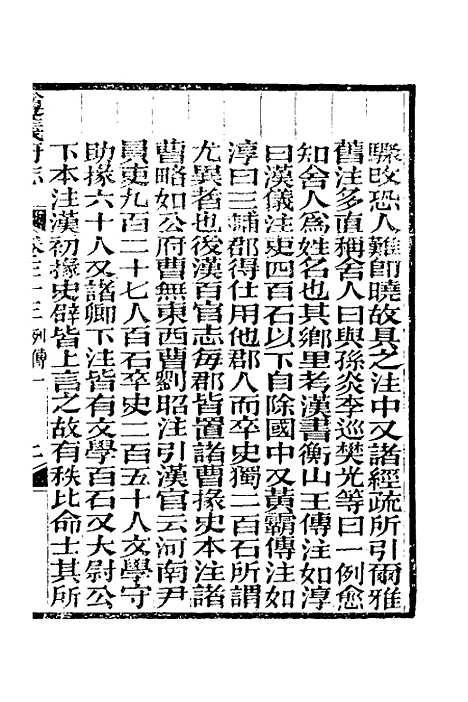 驟改恐人難卽曉故具之注中又諸經疏所引爾雅
舊注多直稱舍人曰與孫炎李巡樊光等曰一例愈
知舍人爲姓名也其鄉里考漢書衡山王傳注如淳
曰漢儀注吏四百石以下自除國中又黃霸傳注如
淳曰三輔郡得仕用他郡人而卒史獨二百石所謂
尤異者也後漢百官志每郡皆置諸曹掾史本注諸
曹略如公府曹無東西曹劉昭注引漢官云河南尹
員吏九百二十七人百石卒史二百五十人文學守
助掾六十人又諸卿下注皆有文學百石又大尉公
下本注漢初掾史辟皆上言之故有秩比命士其所
府志 卷三十三 列傳一